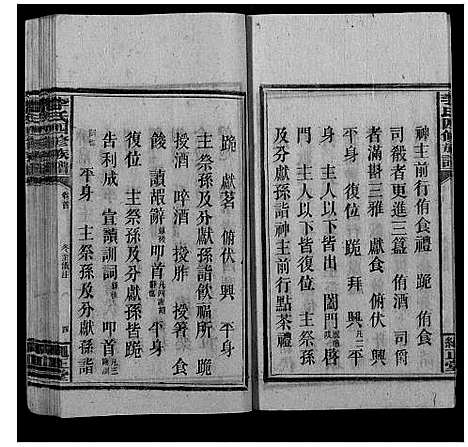 李氏四修族譜
神主前行侑食禮 跪 侑食
司殽者更進三簋 侑酒 司爵
者滿斟三雅 獻食 俯伏 興
平身 復位 跪 拜 興 平
身 主人以下皆出 闔門 啓
門 主人以下皆復位 主祭孫
及分獻孫詣神主前行點茶禮
跪 獻茗 俯伏 興 平身
主祭孫及分獻孫詣飲福所 跪
授酒 啐酒 授胙 授箸 食
餕 讀嘏辭 叩首 平身
復位 主祭孫及分獻孫皆跪
告利成 宣讀訓詞 叩首
平身 主祭孫及分獻孫詣
李氏四修族譜
卷首
冬至儀注
四